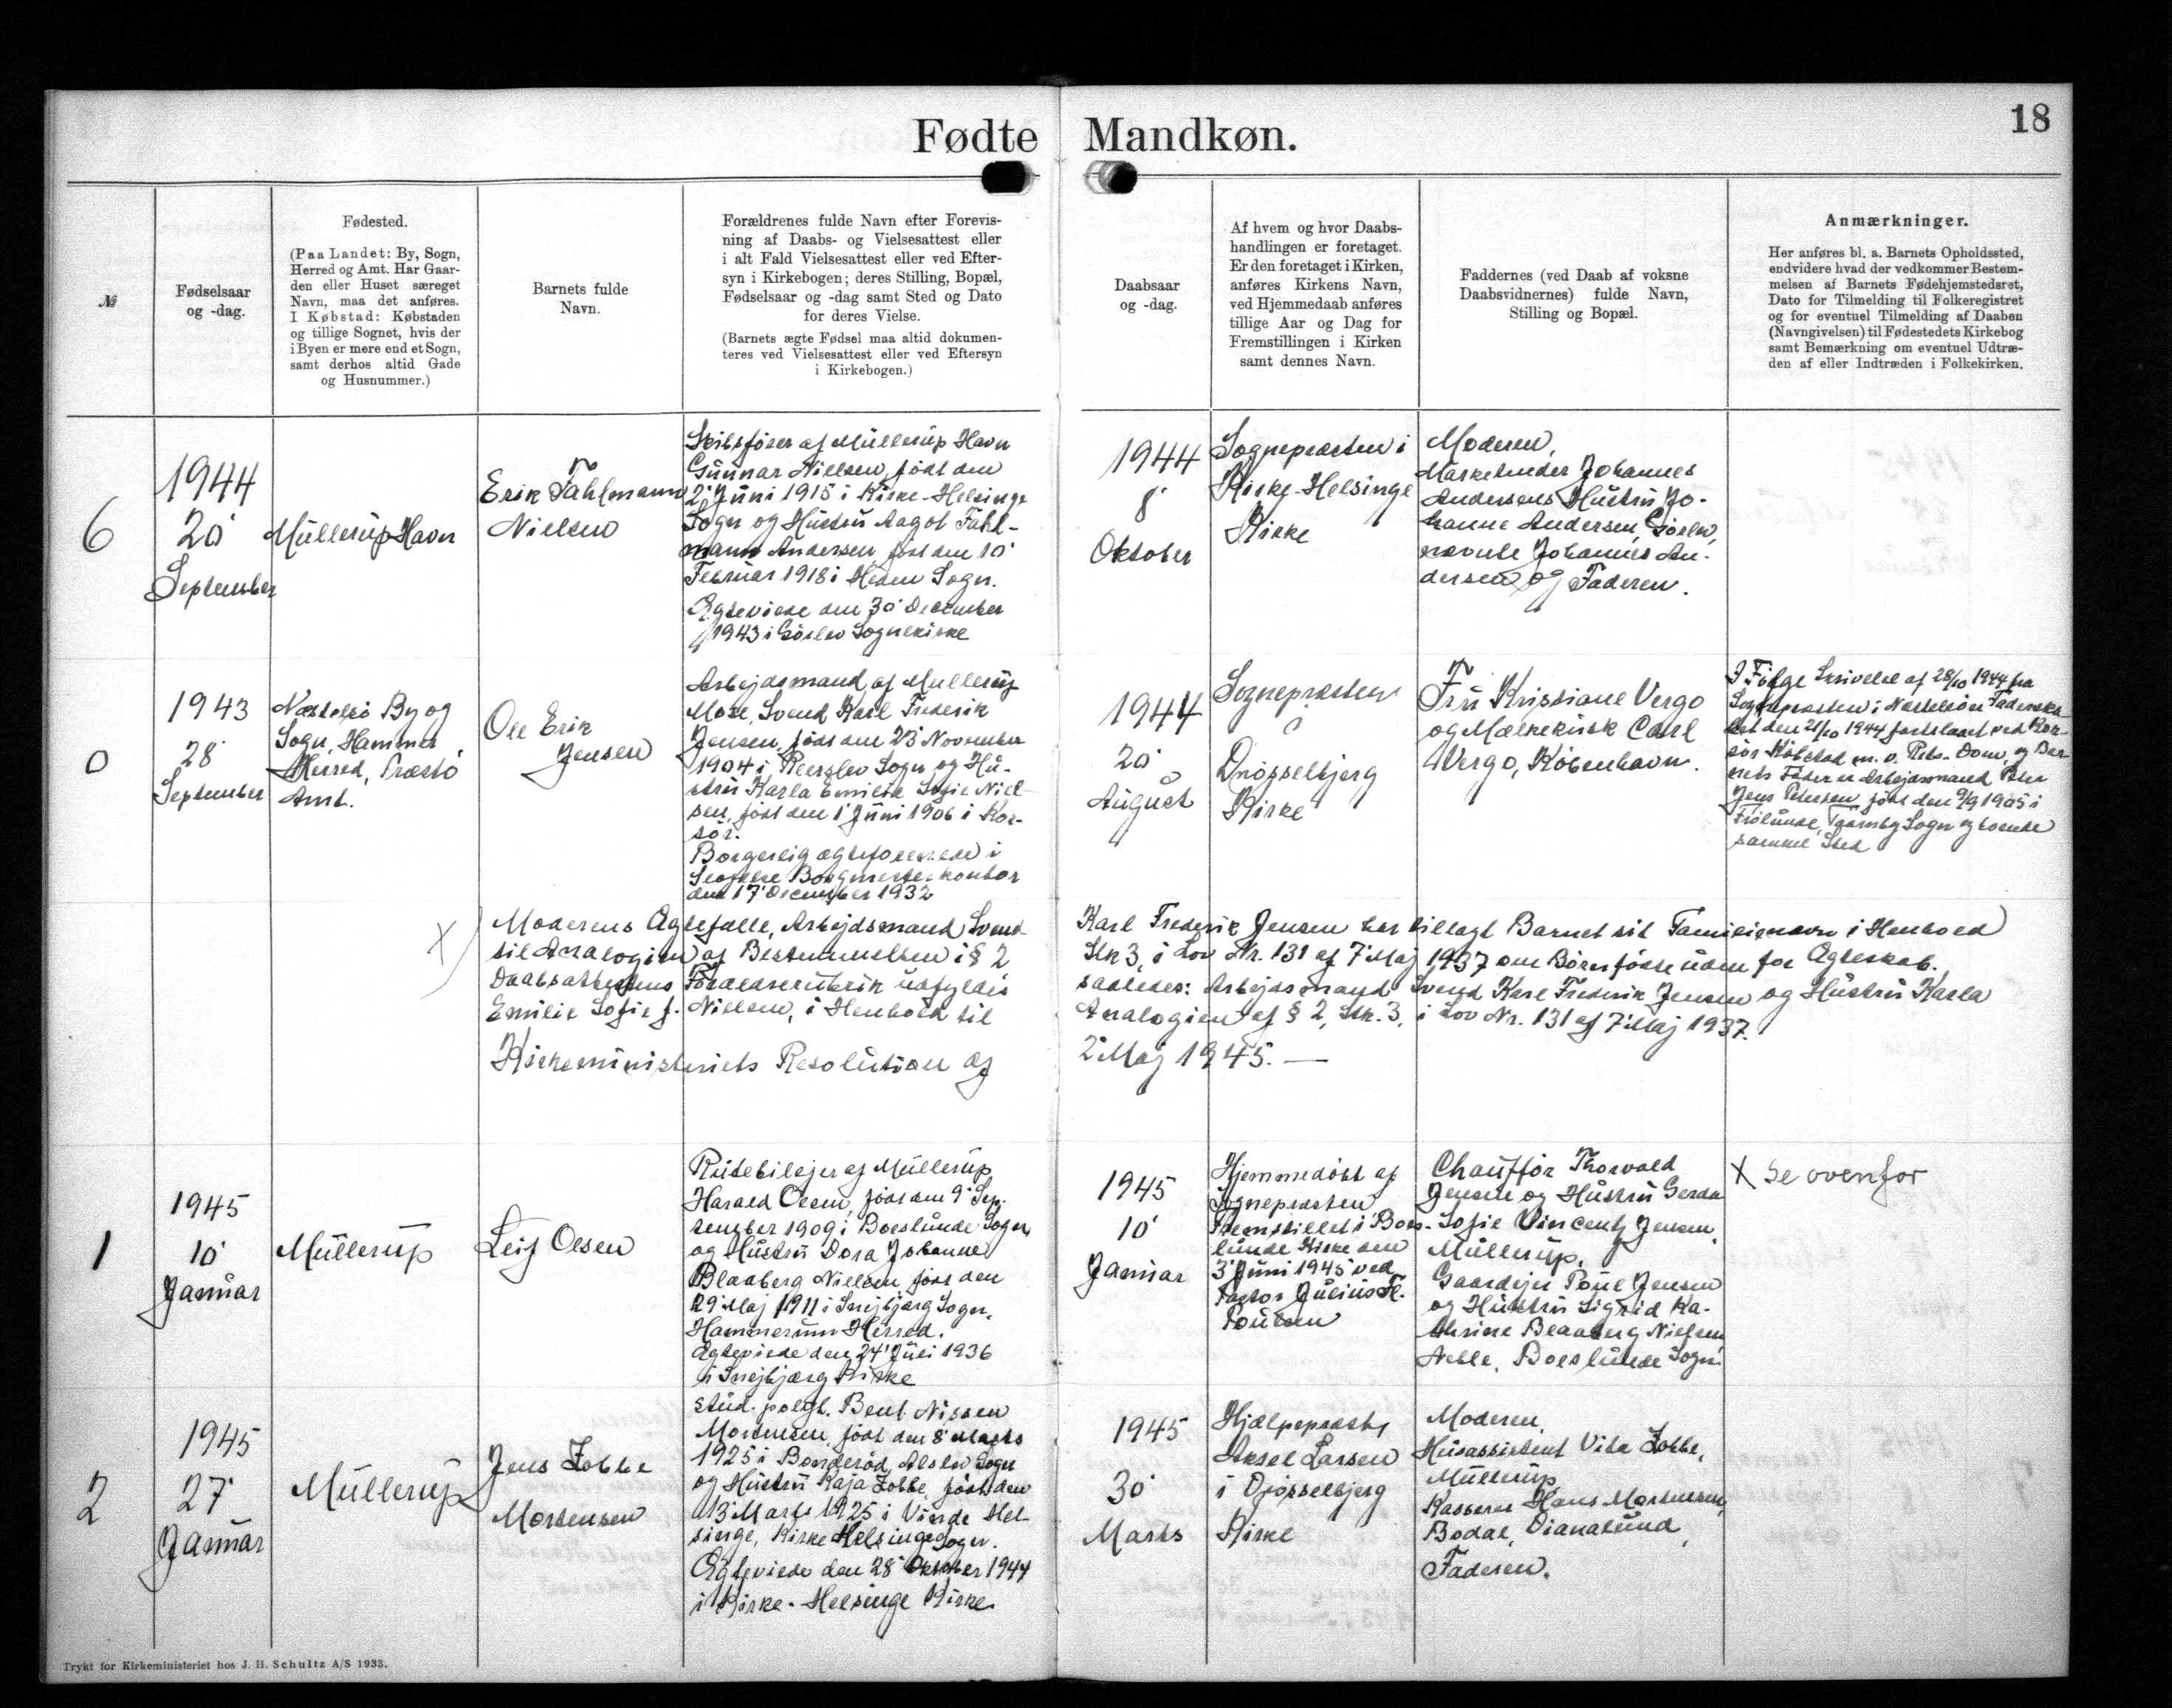 Fødte Mandkøn.
18
№
Fødselsaar
og -dag.
Fødested.
(Paa Landet: By, Sogn,
Herred og Amt. Har Gaar-
den eller Huset særeget
Navn, maa det anføres.
I Købstad: Købstaden
og tillige Sognet, hvis der
i Byen er mere end et Sogn,
samt derhos altid Gade
og Husnummer.)
Barnets fulde
Navn.
Forældrenes fulde Navn efter Forevis-
ning af Daabs- og Vielsesattest eller
i alt Fald Vielsesattest eller ved Efter-
syn i Kirkebogen; deres Stilling, Bopæl,
Fødselsaar og -dag samt Sted og Dato
for deres Vielse.
(Barnets ægte Fødsel maa altid dokumen-
teres ved Vielsesattest eller ved Eftersyn
i Kirkebogen.)
Daabsaar
og -dag.
Af hvem og hvor Daabs-
handlingen er foretaget.
Er den foretaget i Kirken,
anføres Kirkens Navn,
ved Hjemmedaab anføres
tillige Aar og Dag for
Fremstillingen i Kirken
samt dennes Navn.
Faddernes (ved Daab af voksne
Daabsvidnernes) fulde Navn,
Stilling og Bopæl.
Anmærkninger.
Her anføres bl. a. Barnets Opholdssted,
endvidere hvad der vedkommer Bestem-
melsen af Barnets Fødehjemstedsret,
Dato for Tilmelding til Folkeregistret
og for eventuel Tilmelding af Daaben
(Navngivelsen) til Fødestedets Kirkebog
samt Bemærkning om eventuel Udtræ-
den af eller Indtræden i Folkekirken.
6
1944
20'
September
Müllerup Havn
Erik Fahlmann
Nielsen
Skibsfører af Müllerup Havn
Gunnar Nielsen, født den
2' Juni 1915 i Kirke-Helsinge
Sogn og Hustru Aagot Fahl-
mann Andersen født den 10'
Februar 1918 i Heden Sogn.
Ægteviede den 30' December
1943 i Görlev Sognekirke
1944
8'
Oktober
Sognepræsten i
Kirke-Helsinge
Kirke
Moderen,
Marketender Johannes
Andersens Hustru Jo-
hanne Andersen, Görlev,
nævnte Johannes An-
dersen og Faderen.
0
1943
28'
September
Næstelsö By og
Sogn, Hammer
Herred, Præstö
Amt.
Ole Erik
Jensen
Arbejdsmand af Mullerup
Mose, Svend Karl Frederik
Jensen, født den 23' November
1904 i Reerslev Sogn og Hu-
stru Karla Emilie Sofie Niel-
sen, født den 1' Juni 1906 i Kor-
sör.
Borgerlig ægteforenede i
Slagelse Borgmesterkontor
den 17' December 1932
1944
20'
August
Sognepræsten
i
Drösselbjerg
Kirke
Fru Kristiane Vergo
og Mælkekusk Carl
Vergo, København.
I Fölge Skrivelse af 28/10 1944 fra
Sognepræsten i Næstelsö er Faderska-
bet den 21/10 1944 fastslaaet ved Kor-
sör Købstad m. v. Rets-Dom, og Bar-
nets Fader er Arbejdsmand Peter
Jens Petersen født den 9/9 1905 i
Frölunde, Taarnby Sogn og boende
samme Sted
X) Moderens Ægtefælle, Arbejdsmand Svend Karl Frederik Jensen har tillagt Barnet sit Familienavn i Henhold
til Analogien af Bestemmelsen i § 2 Stk 3, i Lov Nr. 131 af 7' Maj 1937 om Børn födte uden for Ægteskab.
Daabsattestens Forældrerubrik udfyldes saaledes: Arbejdsmand Svend Karl Frederik Jensen og Hustru Karla
Emilie Sofie f. Nielsen, i Henhold til Analogien af § 2, Stk. 3, i Lov Nr. 131 af 7' Maj 1937.
Kirkeministeriets Resolution af 2' Maj 1945. —
1
1945
10'
Januar
Müllerup
Leif Olsen
Rutebilejer af Müllerup
Harald Olsen, født den 9' Sep-
tember 1909 i Boeslunde Sogn,
og Hustru Dora Johanne
Blaaberg Nielsen født den
29' Maj 1911 i Snejbjerg Sogn.
Hammerum Herred.
Ægteviede den 24' Juli 1936
i Snejbjærg Kirke
1945
10'
Januar
Hjemmedöbt af
Sognepræsten
Fremstillet i Boes-
lunde Kirke den
3' Juni 1945 ved
Pastor Julius Fl.
Poulsen
Chauffør Thorvald
Jensen og Hustru Gerda
Sofie Vincentz Jensen,
Müllerup.
Gaardejer Poul Jensen
og Hustru Sigrid Ka-
thrine Blaaberg Nielsen
Neble, Boeslunde Sogn.
X Se ovenfor
2
1945
27'
Januar
Müllerup
Jens Lobbe
Mortensen
stud. polyt. Bent Nissen
Mortensen, født den 8' Marts
1925 i Bonderöd, Alsted Sogn
og Hustru Kaja Lobbe, født den
13' Marts 1925 i Vinde Hel-
singe, Kirke Helsinge Sogn.
Ægteviede den 28' Oktober 1944
i Kirke-Helsinge Kirke
1945
30'
Marts
Hjælpepræst
Aksel Larsen
i Drösselbjerg
Kirke
Moderen,
Husassistent Vita Lobbe,
Müllerup
Kasserer Hans Mortensen,
Bodal, Dianalund,
Faderen.
Trykt for Kirkeministeriet hos J. H. Schultz A/S 1933.